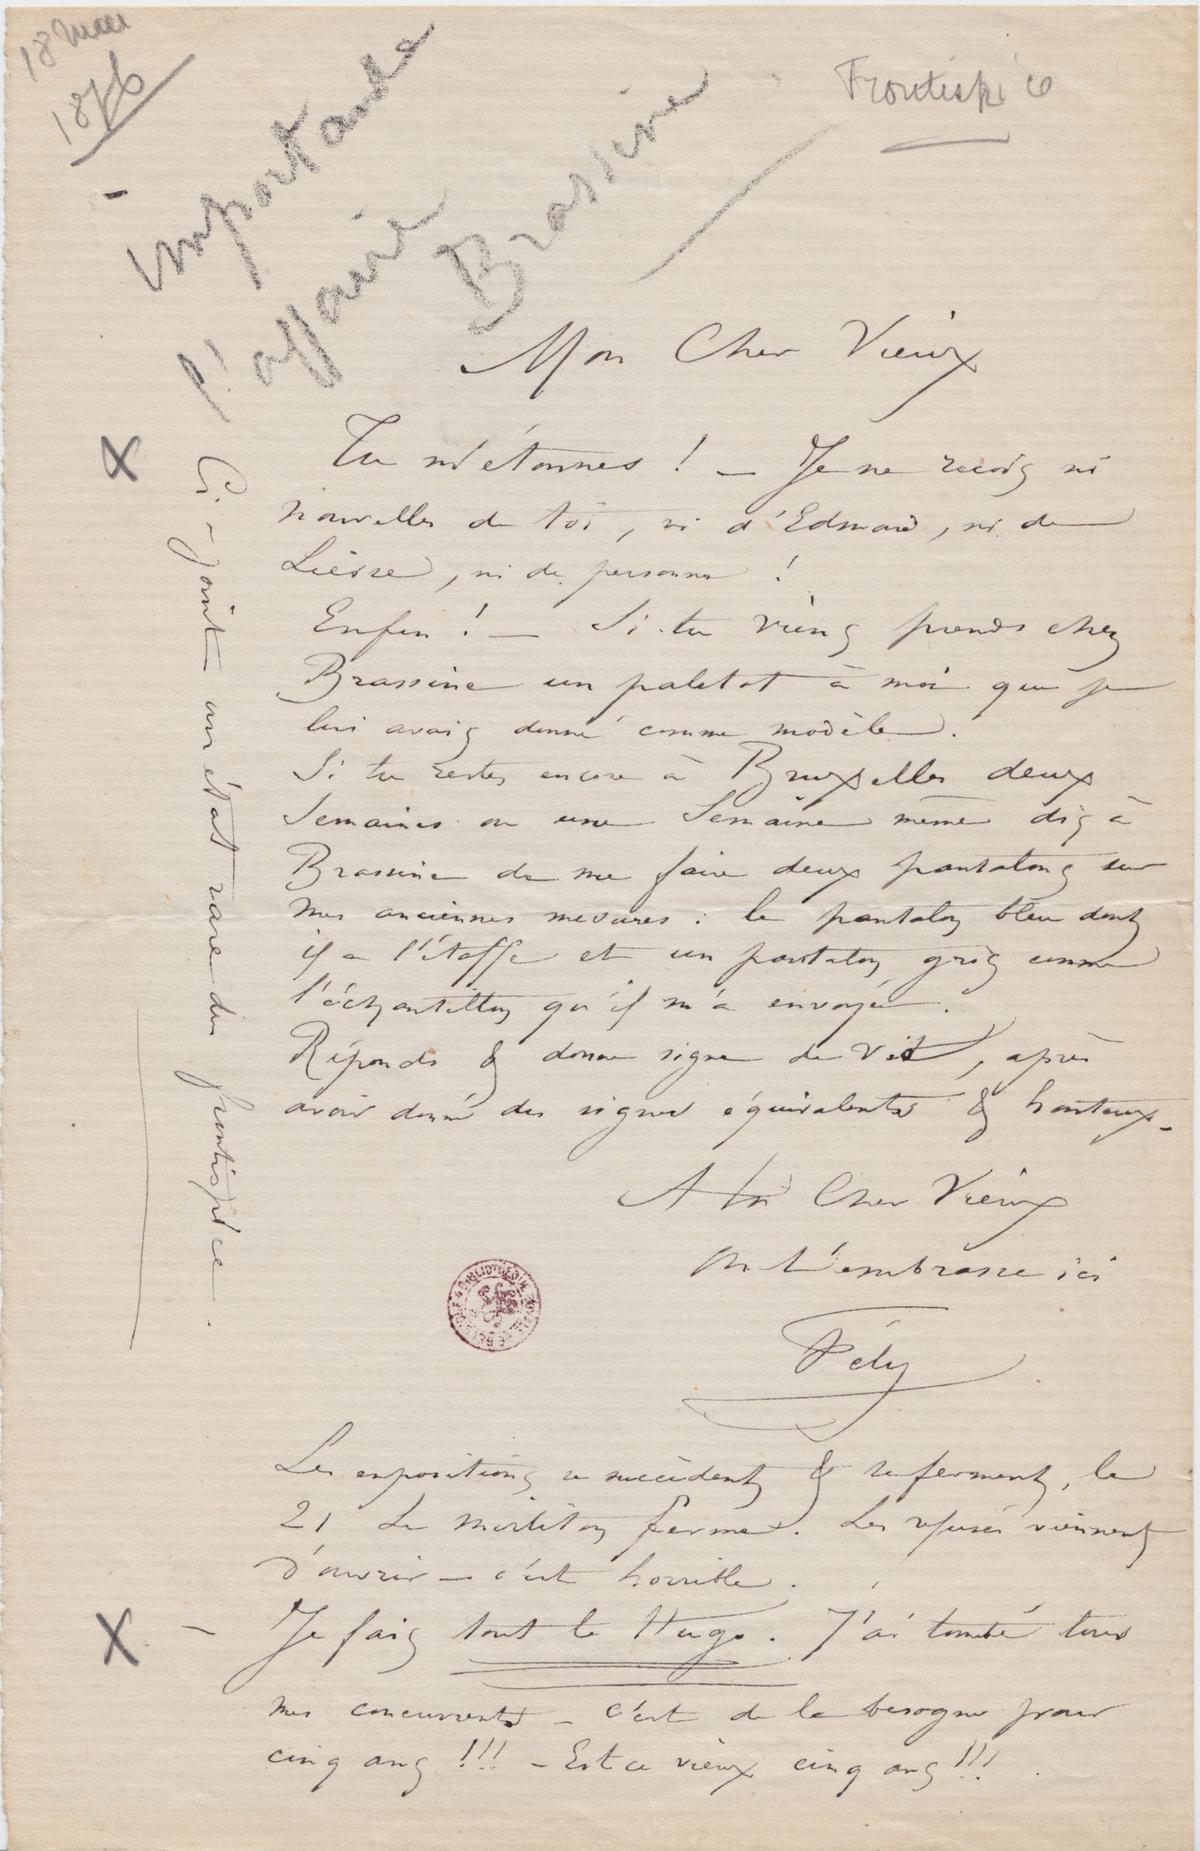 18 Mai
1876
Frontispice
importante
l'affaire
Brassine
Mon Cher Vieux
Tu m'étonnes ! — Je ne reçois ni
nouvelles de toi, ni d'Edmond, ni de
Liesse, ni de personne !
Enfin ! — Si tu viens prends chez
Brassine un paletot à moi que je
lui avais donné comme modèle.
Si tu restes encore à Bruxelles deux
Semaines ou une Semaine même dis à
Brassine de me faire deux pantalons sur
mes anciennes mesures : le pantalon bleu dont
il a l'étoffe et un pantalon gris comme
l'échantillon qu'il m'a envoyé.
Réponds & donne signe de vit, après
avoir donné des signes équivalents & honteux.
A toi Cher Vieux
On t'embrasse ici
Fély
Les expositions se succèdent & se ferment, le
21 Le Mirliton ferme. Les refusés viennent
d'ouvrir — c'est horrible.
X — Je fais tout le Hugo. J'ai tombé tous
mes concurrents — c'est de la besogne pour
cinq ans !!! — Est ce vieux cinq ans !!!
X Ci-joint un état rare du frontispice.